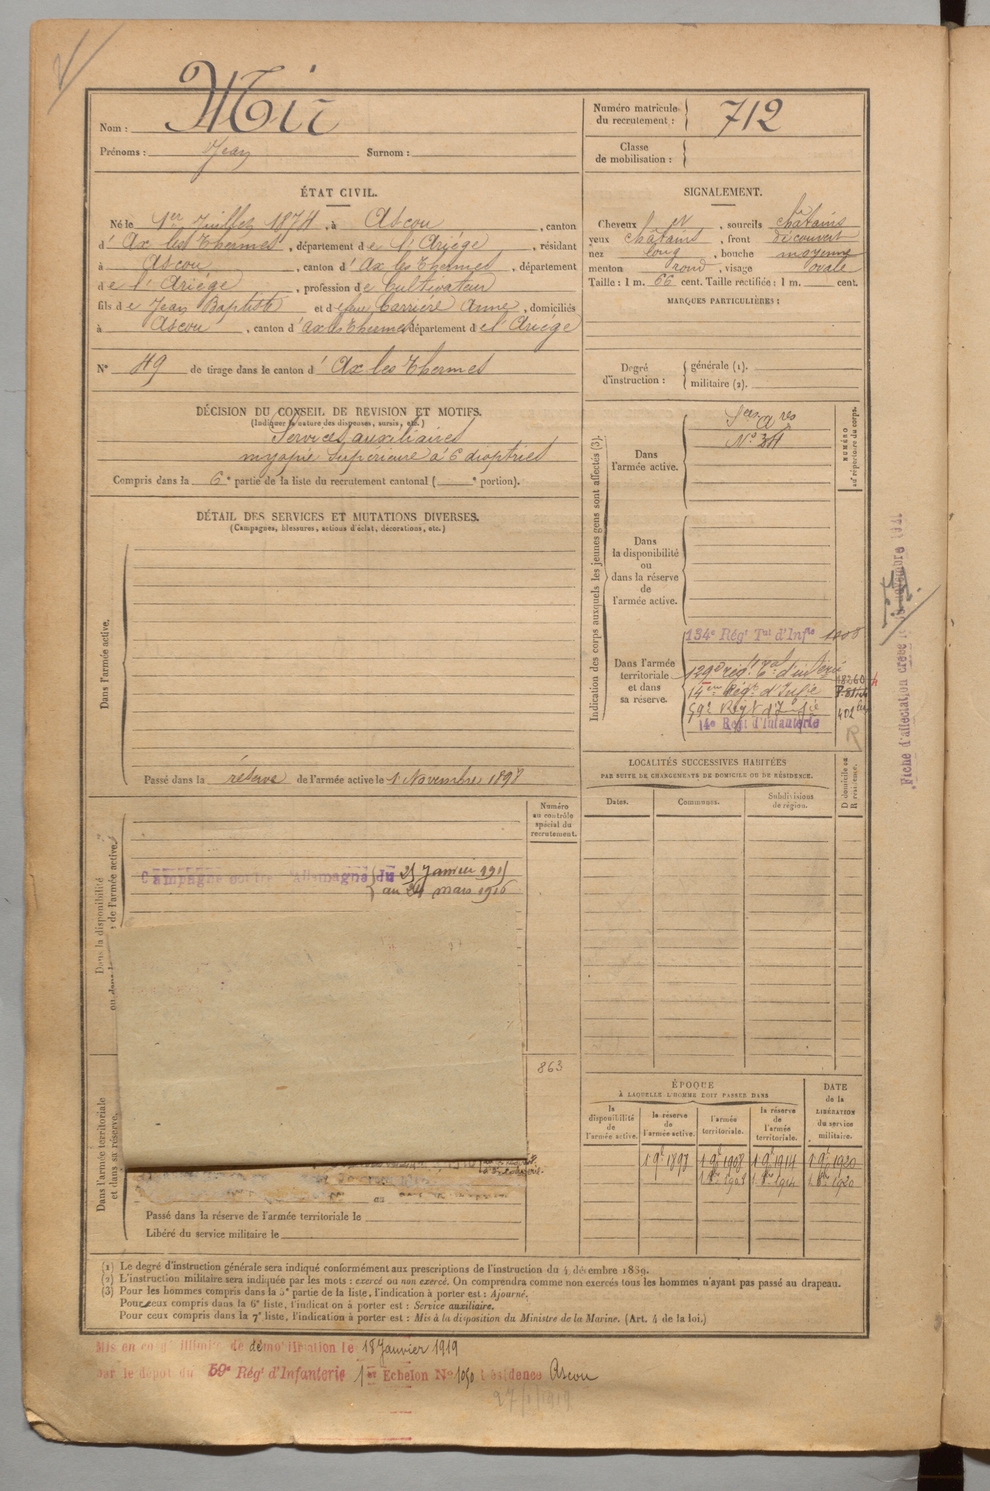 Nom : Mir
Numéro matricule du recrutement : 712
Prénoms : Jean Surnom :
Classe de mobilisation :
ÉTAT CIVIL.
Né le 1er Juillet 1874, à Ascou, canton
d'Ax les Thermes, département de l'Ariège, résidant
à Ascou, canton d'Ax les Thermes, département
de l'Ariège, profession de Cultivateur
fils de Jean Baptiste et de feue Carrière Anne, domiciliés
à Ascou, canton d'ax les thermes département de l'Ariège
N° 49 de tirage dans le canton d'Ax les Thermes
SIGNALEMENT.
Cheveux et, sourcils châtains
yeux châtains, front découvert
nez long, bouche moyenne
menton rond, visage ovale
Taille : 1 m. 66 cent. Taille rectifiée : 1 m. cent.
MARQUES PARTICULIÈRES :
Degré d'instruction : générale (1).
militaire (2).
DÉCISION DU CONSEIL DE REVISION ET MOTIFS.
(Indiquer la nature des dispenses, sursis, etc.)
Services auxiliaires
myopie Supérieure à 6 dioptries
Compris dans la 6e partie de la liste du recrutement cantonal ( e portion).
DÉTAIL DES SERVICES ET MUTATIONS DIVERSES.
(Campagnes, blessures, actions d'éclat, décorations, etc.)
Dans l'armée active.
Passé dans la réserve de l'armée active le 1 Novembre 1898
Indication des corps auxquels les jeunes gens sont affectés (3).
NUMÉRO au répertoire du corps.
Dans l'armée active.
N° 34
Dans la disponibilité ou dans la réserve de l'armée active.
Dans l'armée territoriale et dans sa réserve.
134e Régt Tal d'Infie
129e rég. tal d'infanie
14em Régt d'Infie
59e Regt d'Infie
14e Régt d'Infanterie
R
LOCALITÉS SUCCESSIVES HABITÉES
PAR SUITE DE CHANGEMENTS DE DOMICILE OU DE RÉSIDENCE.
Dates.
Communes.
Subdivisions de région.
D domicile ou R résidence.
Numéro au contrôle spécial du recrutement.
Dans la disponibilité
de l'armée active.
Campagne contre l'Allemagne du 25 Janvier 1915
au 24 mars 1916
863
Dans l'armée territoriale et dans sa réserve.
ÉPOQUE
À LAQUELLE L'HOMME DOIT PASSER DANS
la disponibilité de l'armée active.
la réserve de l'armée active.
l'armée territoriale.
la réserve de l'armée territoriale.
DATE de la LIBÉRATION du service militaire.
1 9e 1897
1 9e 1908
1 9e 1914
1 9e 1920
Passé dans la réserve de l'armée territoriale le
Libéré du service militaire le
(1) Le degré d'instruction générale sera indiqué conformément aux prescriptions de l'instruction du 4 décembre 1889.
(2) L'instruction militaire sera indiquée par les mots : exercé ou non exercé. On comprendra comme non exercés tous les hommes n'ayant pas passé au drapeau.
(3) Pour les hommes compris dans la 5e partie de la liste, l'indication à porter est : Ajourné.
Pour ceux compris dans la 6e liste, l'indication à porter est : Service auxiliaire.
Pour ceux compris dans la 7e liste, l'indication à porter est : Mis à la disposition du Ministre de la Marine. (Art. 4 de la loi.)
Mis en congé illimité de démobilisation le 18 Janvier 1919
par le dépôt du 59e Régt d'Infanterie 1er Echelon N° 1050 Résidence Ascou
27/1/1919
Fiche d'affectation créée le novembre